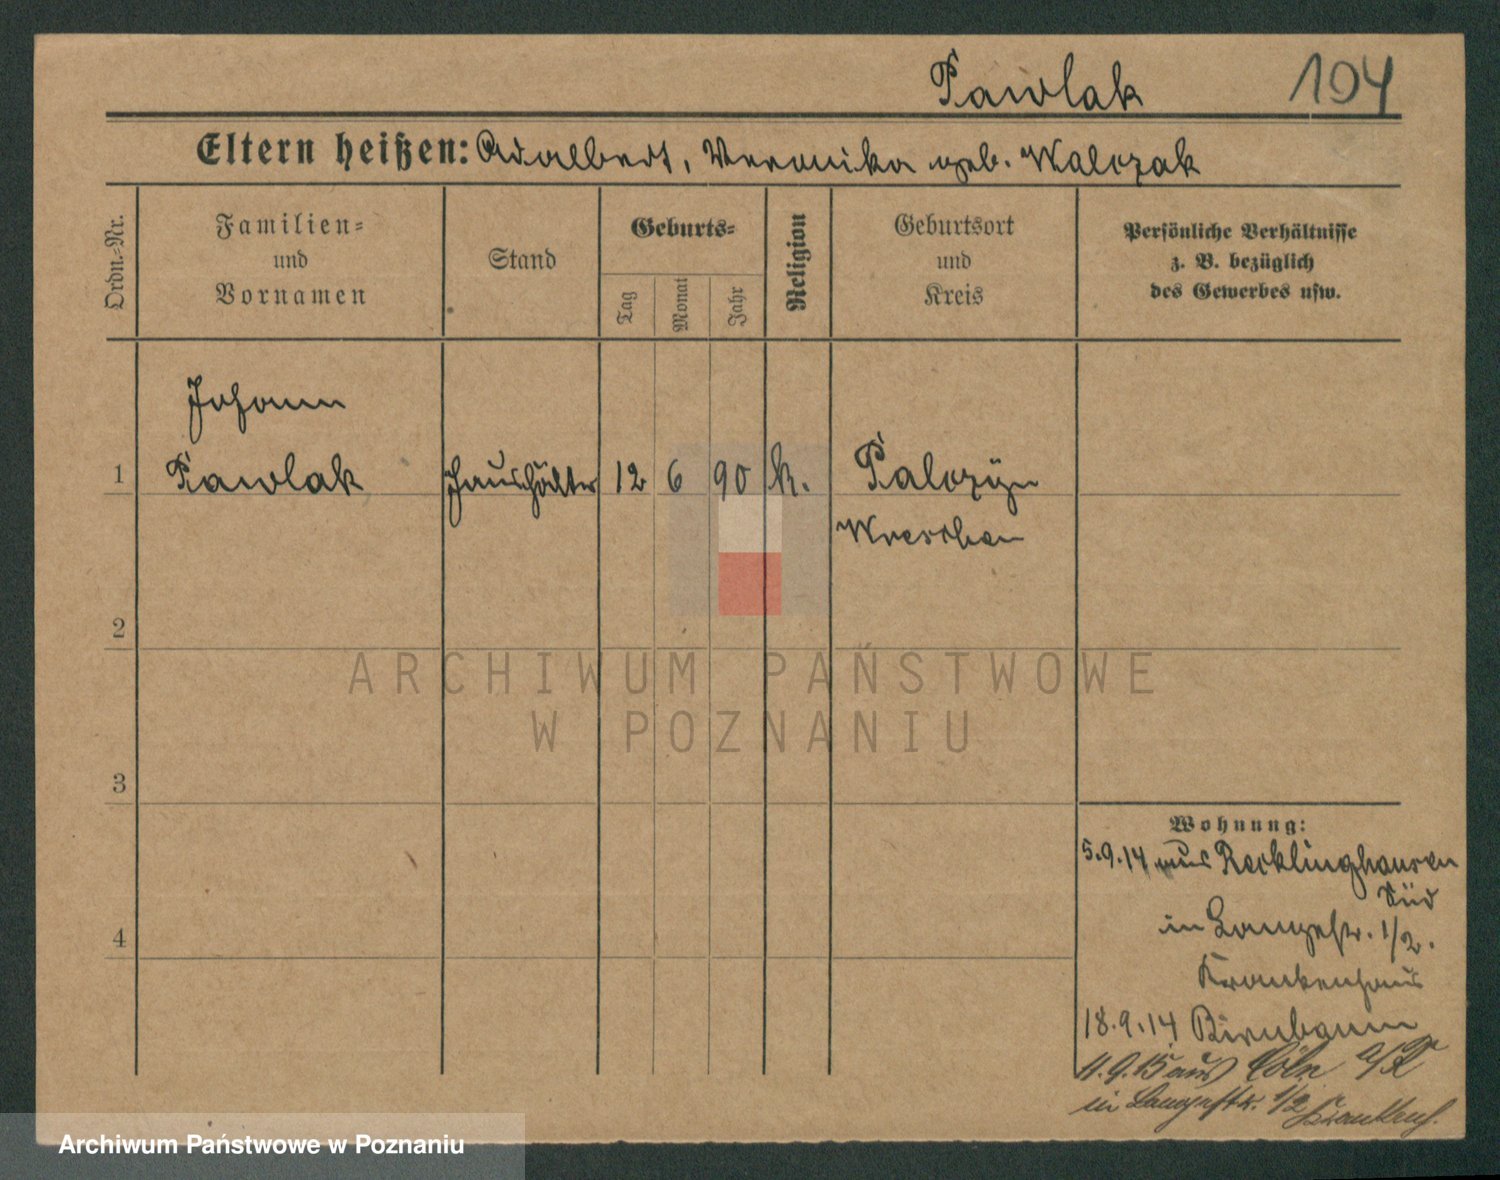 Pawlak 104
Eltern heißen: Adalbert, Veronika geb. Walczak
Ordn.-Nr.
Familien-
und
Vornamen
Stand
Geburts-
Tag
Monat
Jahr
Religion
Geburtsort
und
Kreis
Persönliche Verhältnisse
z. B. bezüglich
des Gewerbes usw.
Johann
1 Pawlak 12 6 90 k. Palczyn
Wreschen
2
3
4
Wohnung:
5.9.14 aus Recklinghausen
Süd
in Langestr. 1/2.
Krankenhaus
18.9.14 Birnbaum
11.9.15 aus Cöln a/R
in Langestr. 1/2 Krankenh.
ARCHIWUM PAŃSTWOWE
W POZNANIU
Archiwum Państwowe w Poznaniu